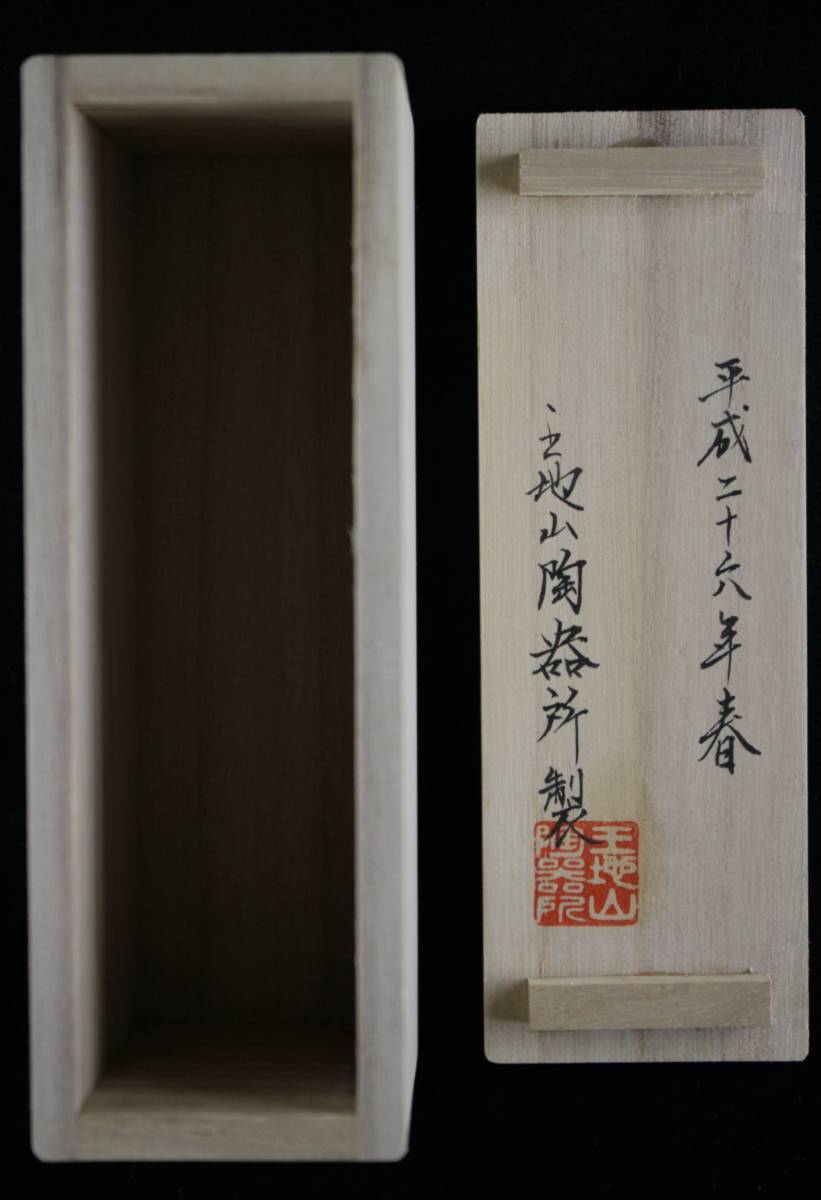 平成二十六年春
王地山陶器所製
王地山
陶器所